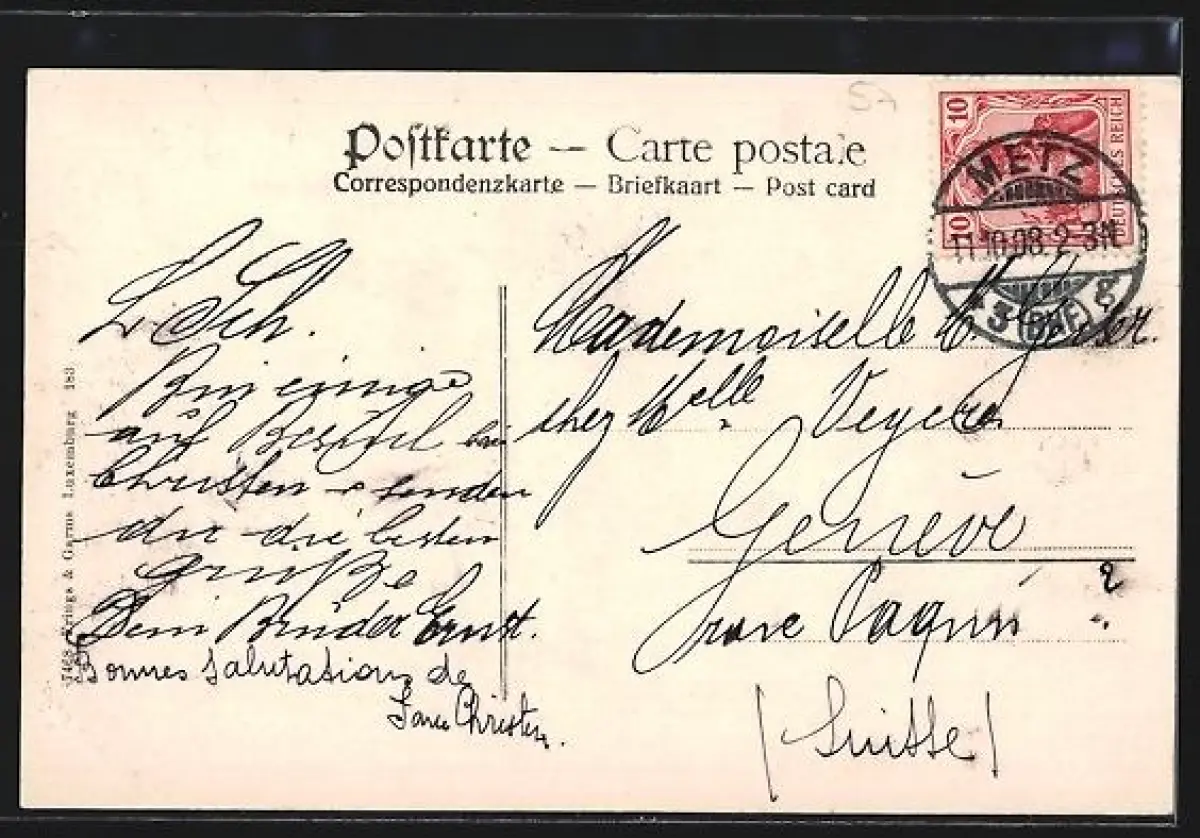 Postkarte — Carte postale
Correspondenzkarte — Briefkaart — Post card
10
10
DEUTSCHES REICH
METZ
11.10.08.2-3N
* 3 (BHF) g
L Sch.
Bin einige
auf Besuch bei
Christen & senden
dir die besten
Grüße
Dein Bruder Ernst.
Bonnes salutations de
Christen.
Mademoiselle M.
chez Melle
Genève
rue Paquis 2
(Suisse)
& Garms Luxemburg 183